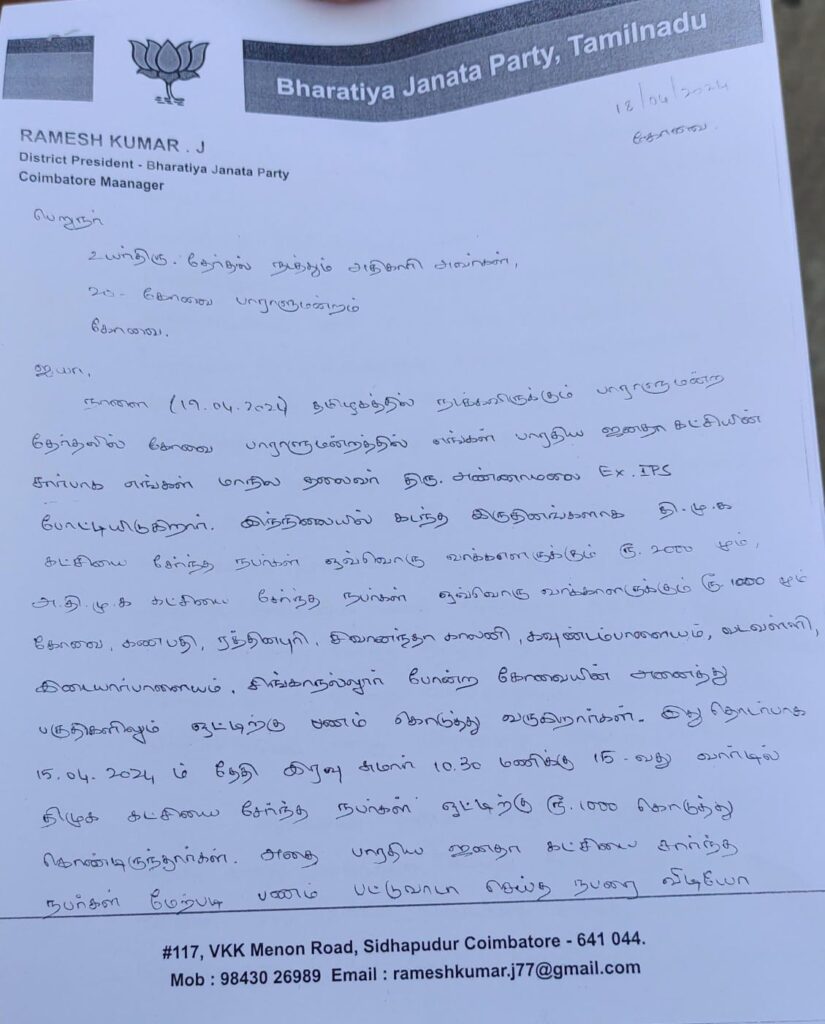 Bharatiya Janata Party, Tamilnadu
18/04/2024
கோவை.
RAMESH KUMAR . J
District President - Bharatiya Janata Party
Coimbatore Maanager
பெறுநர்
உயர்திரு. தேர்தல் நடத்தும் அதிகாரி அவர்கள்,
20 - கோவை பாராளுமன்றம்
கோவை.
ஐயா,
நாளை (19.04.2024) தமிழகத்தில் நடக்கவிருக்கும் பாராளுமன்ற
தேர்தலில் கோவை பாராளுமன்றத்தில் எங்கள் பாரதிய ஜனதா கட்சியின்
சார்பாக எங்கள் மாநில தலைவர் திரு. அண்ணாமலை Ex. IPS
போட்டியிடுகிறார். இந்நிலையில் கடந்த இருதினங்களாக தி.மு.க
கட்சியை சேர்ந்த நபர்கள் ஒவ்வொரு வாக்காளருக்கும் ரூ. 2000 மும்,
அ.தி.மு.க கட்சியை சேர்ந்த நபர்கள் ஒவ்வொரு வாக்காளருக்கும் ரூ 1000 மும்
கோவை, கணபதி, ரத்தினபுரி, சிவானந்தா காலனி, கவுண்டம்பாளையம், வடவள்ளி,
இடையார்பாளையம், சிங்காநல்லூர் போன்ற கோவையின் அனைத்து
பகுதிகளிலும் ஓட்டிற்கு பணம் கொடுத்து வருகிறார்கள். இது தொடர்பாக
15.04.2024 ம் தேதி இரவு சுமார் 10.30 மணிக்கு 15-வது வார்டில்
திமுக கட்சியை சேர்ந்த நபர்கள் ஓட்டிற்கு ரூ.1000 கொடுத்து
கொண்டிருந்தார்கள். அதை பாரதிய ஜனதா கட்சியை சார்ந்த
நபர்கள் மேற்படி பணம் பட்டுவாடா செய்த நபரை வீடியோ
#117, VKK Menon Road, Sidhapudur Coimbatore - 641 044.
Mob : 98430 26989 Email : rameshkumar.j77@gmail.com